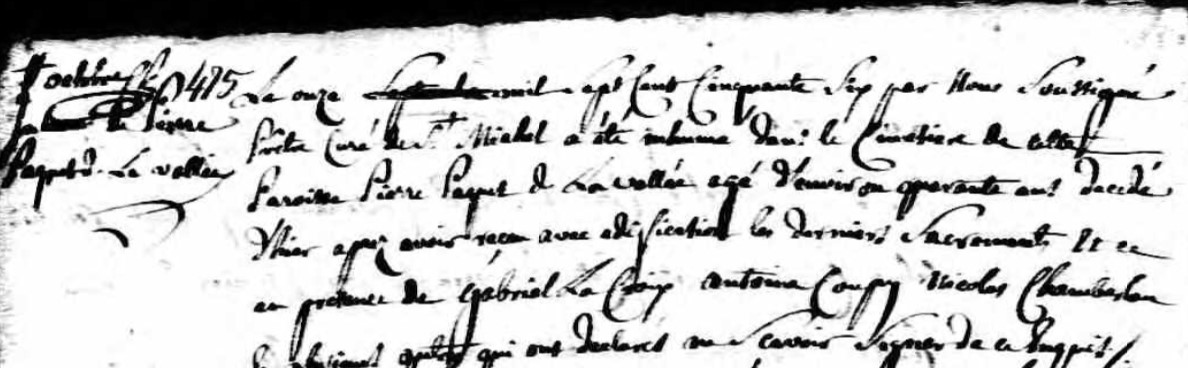 octobre S 475
de Pierre
Paquet d. La vallée
Le onze mil sept Cent Cinquante Six par Nous Soussigné
Prêtre Curé de St Michel a été inhumé dans le Cimetiere de cette
Paroisse Pierre Paquet d La vallée agé d'environ quarante ans decedé
Hier apres avoir reçu avec edification les derniers Sacrements Et ce
en presence de Gabriel La Croix antoine Coupy Nicolas Chamberlan
& plusieurs autres qui ont declarés ne Scavoir Signer de ce Enquis